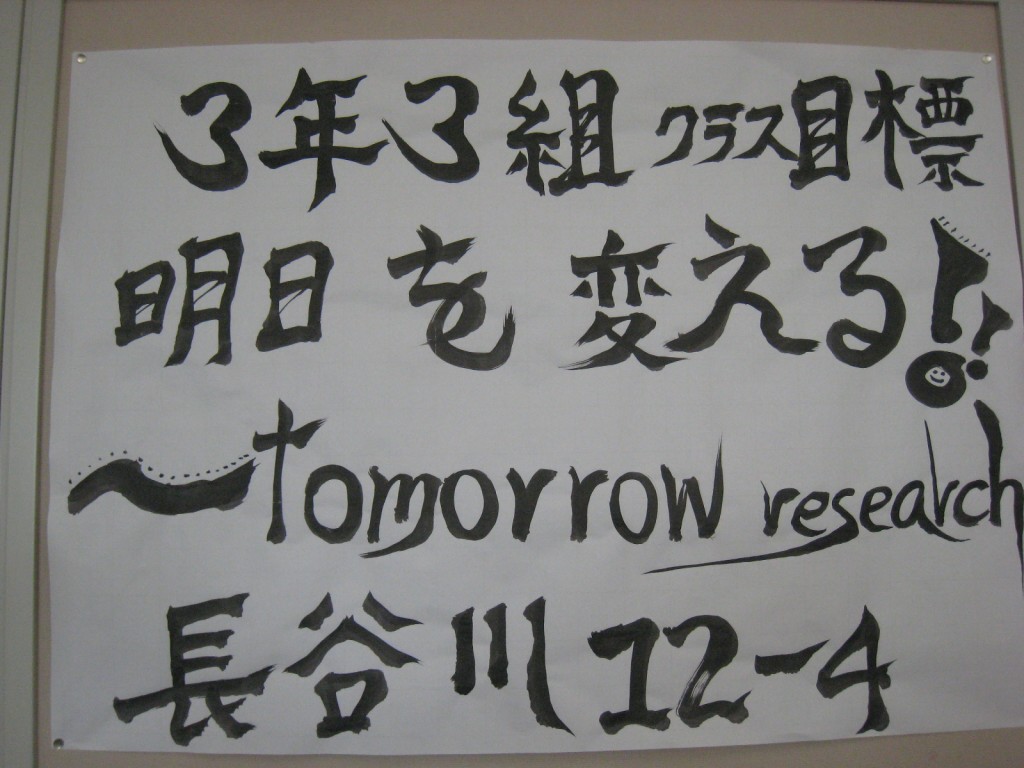 3年3組クラス目標
明日を変える!!
~tomorrow research
長谷川12-4